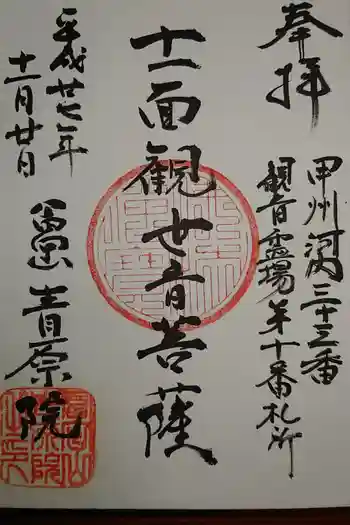 奉拝
甲州河内三十三番
観音霊場第十番札所
十一面観世音菩薩
平成廿七年
十一月廿日
青原院